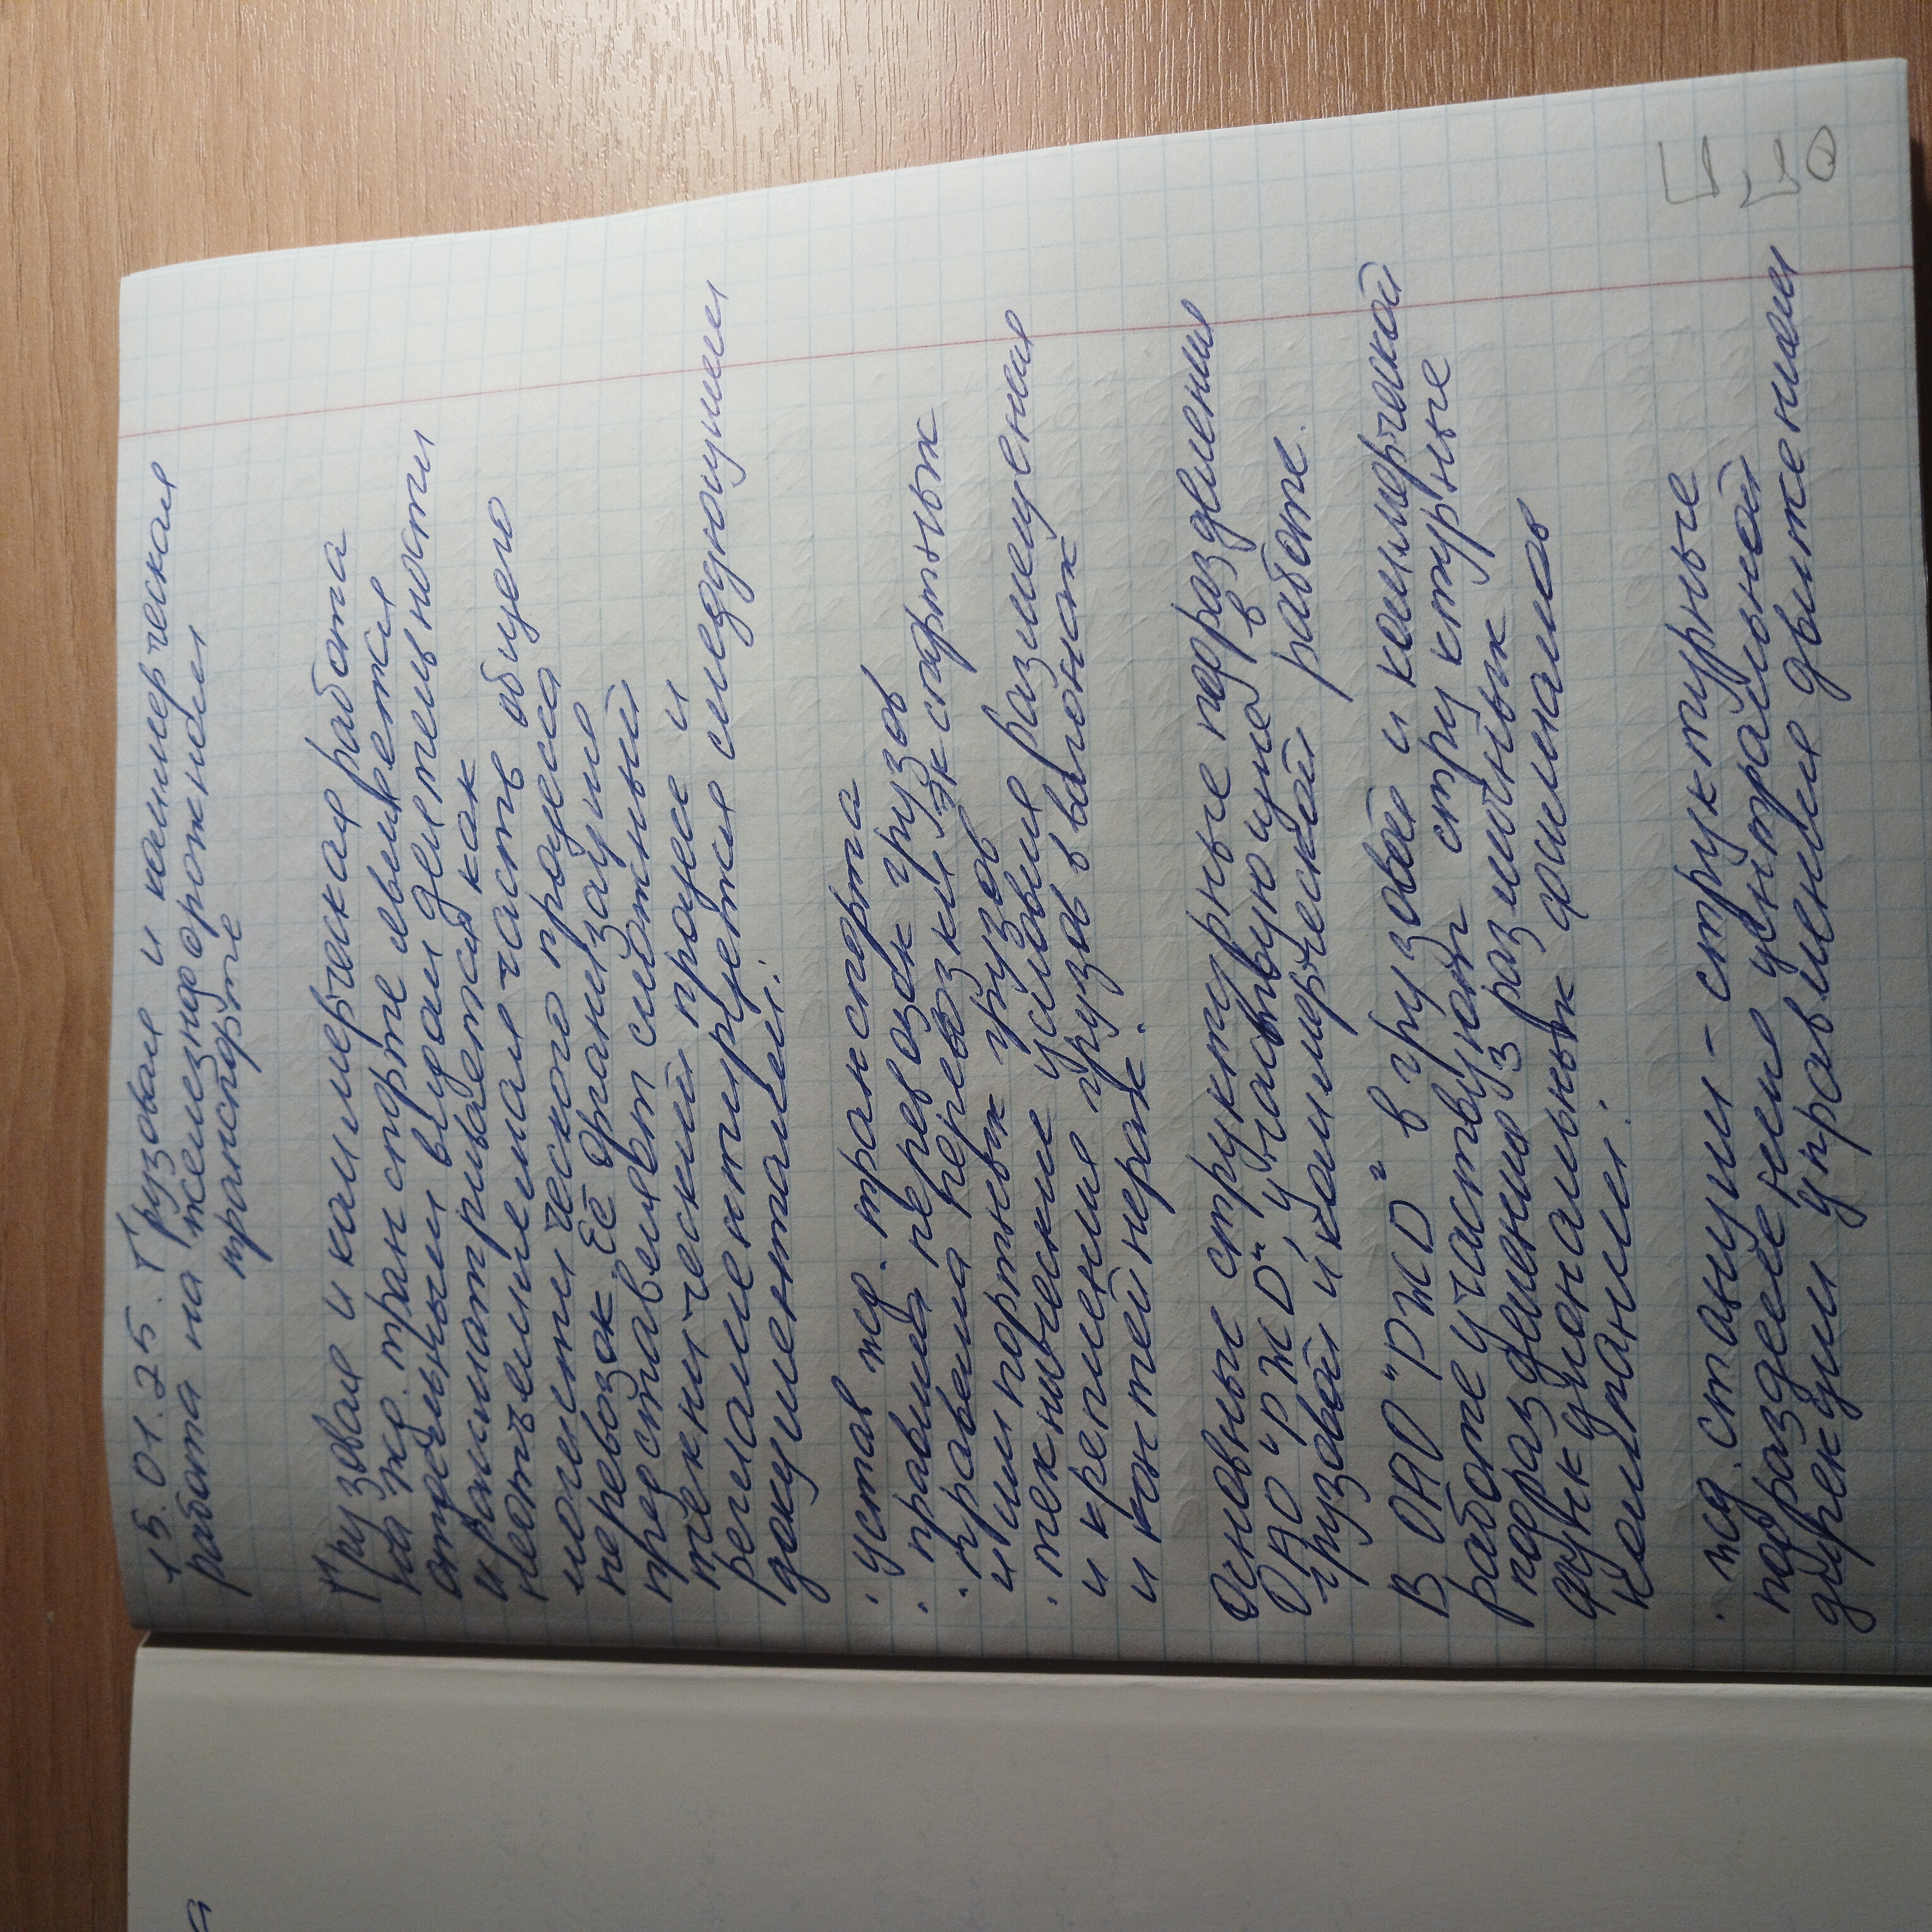 15.01.25. Грузовая и коммерческая
работа на железнодорожном
транспорте
Грузовая и коммерческая работа
на жд. транспорте является
отдельным видом деятельности
и рассматривается как
неотъемлемая часть общего
логистического процесса
перевозок. Её организация
представляет сложный
технический процесс и
регламентируется следующими
документами:
· устав жд. транспорта
· правила перевозок грузов
· правила перевозки экспортных
и импортных грузов
· технические условия размещения
и крепления грузов в вагонах
и контейнерах.
Основные структурные подразделения
ОАО "РЖД", участвующие в
грузовой и коммерческой работе.
В ОАО "РЖД" в грузовой и коммерческой
работе участвуют структурные
подразделения различных
функциональных филиалов
компании:
· жд. станции - структурные
подразделение центральной
дирекции управления движением